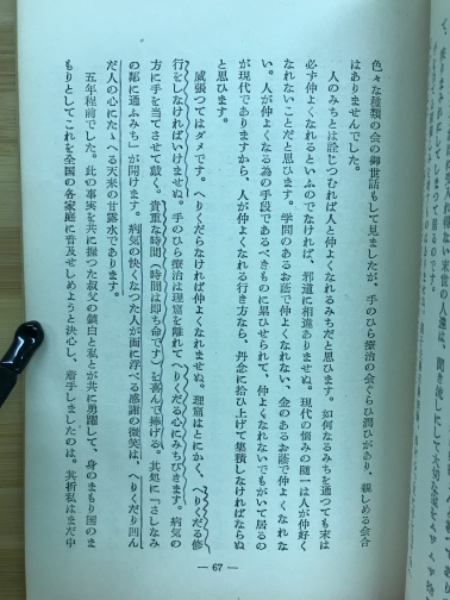 色々な種類の会の御世話もして見ましたが、手のひら療治の会ぐらひ潤ひがあり、親しめる会合
はありませんでした。
人のみちとは詮じつむれば人と仲よくなれるみちだと思ひます。如何なるみちを通つても末は
必ず仲よくなれるといふのでなければ、邪道に相違ありませぬ。現代の悩みの随一は人が仲好く
なれないことだと思ひます。学問のあるお蔭で仲よくなれない、金のあるお蔭で仲よくなれな
い。人が仲よくなる為の手段であるべきものに累ひせられて、仲よくなれないでもがいて居るの
が現代でありますから、人が仲よくなれる行き方なら、丹念に拾ひ上げて集積しなければならぬ
と思ひます。
威張つてはダメです。へりくだらなければ仲よくなれませぬ。理窟はとにかく、へりくだる修
行をしなければいけませぬ。手のひら療治は理窟を離れてへりくだる心にみちびきます。病気の
方に手を当てさせて戴く。貴重な時間(時間は即ち命です)を喜んで捧げる。其処に「さしなみ
の鄰に通ふみち」が開けます。病気の快くなつた人が面に浮べる感謝の微笑は、へりくだり凹ん
だ人の心にたゝへる天来の甘露水であります。
五年程前でした。此の事実を共に掘つた叔父の鎮白と私とが共に勇躍して、身のまもり国のま
もりとしてこれを全国の各家庭に普及せしめようと決心し、着手しましたのは。其折私はまだ中
— 67 —